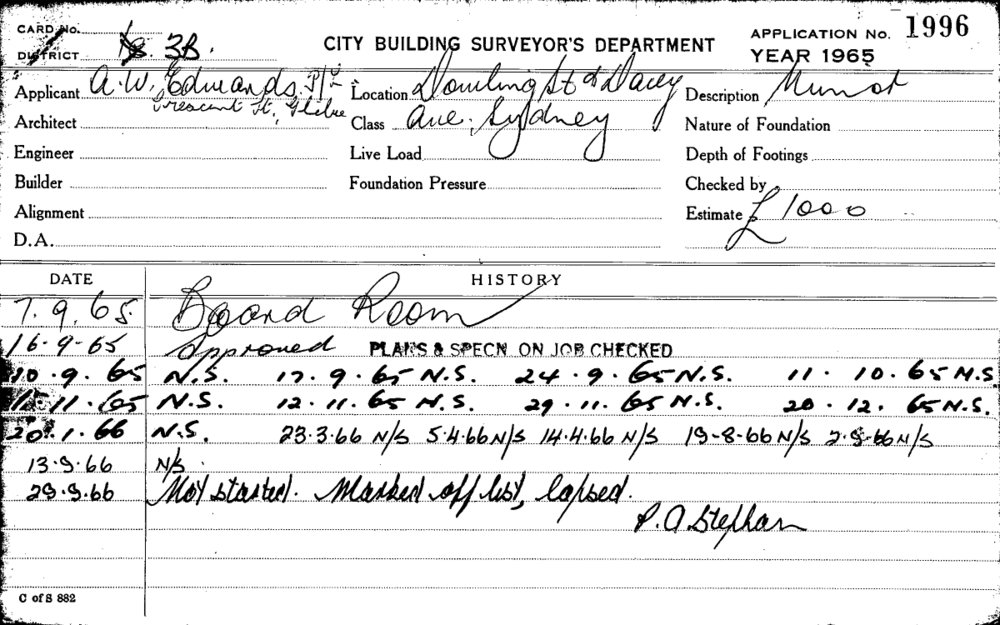 CARD No.
CITY BUILDING SURVEYOR'S DEPARTMENT
APPLICATION No. 1996
YEAR 1965
DISTRICT 3B.
Applicant A.W. Edwards P/L Location Dowling St & Davey Description
Crescent St, Glebe
Architect Class Ave. Sydney Nature of Foundation
Engineer Live Load Depth of Footings
Builder Foundation Pressure Checked by
Alignment Estimate £ 1000
D.A.
DATE HISTORY
7.9.65. Board Room
16.9.65 Approved PLANS & SPECN ON JOB CHECKED
10.9.65 N.S. 17.9.65 N.S. 24.9.65 N.S. 11.10.65 N.S.
1.11.65 N.S. 12.11.65 N.S. 29.11.65 N.S. 20.12.65 N.S.
20.1.66 N.S. 23.3.66 N/S 5.4.66 N/S 14.4.66 N/S 19-8-66 N/S 2.9.66 N/S
13.9.66 N/S.
29.9.66 Not started. Marked off list, lapsed.
P.A Stephan
C of S 882